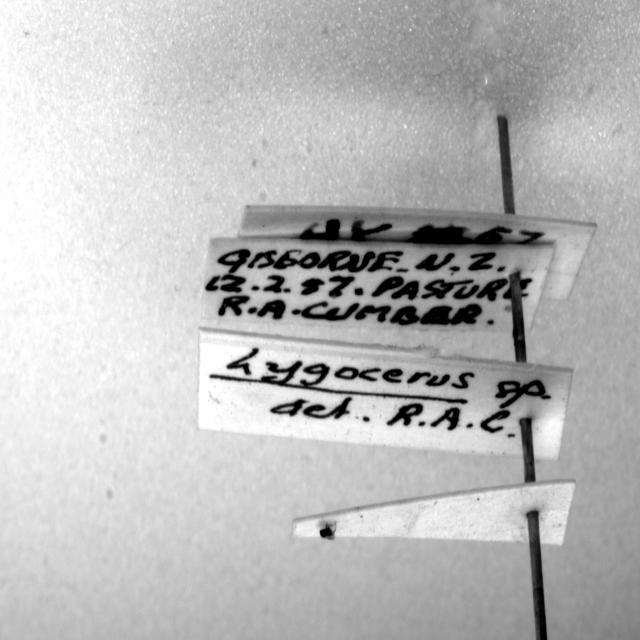 GISBORNE. N.Z.
12.2.57. PASTURE
R.A. CUMBER.
Lygocerus sp.
det. R.A.C.